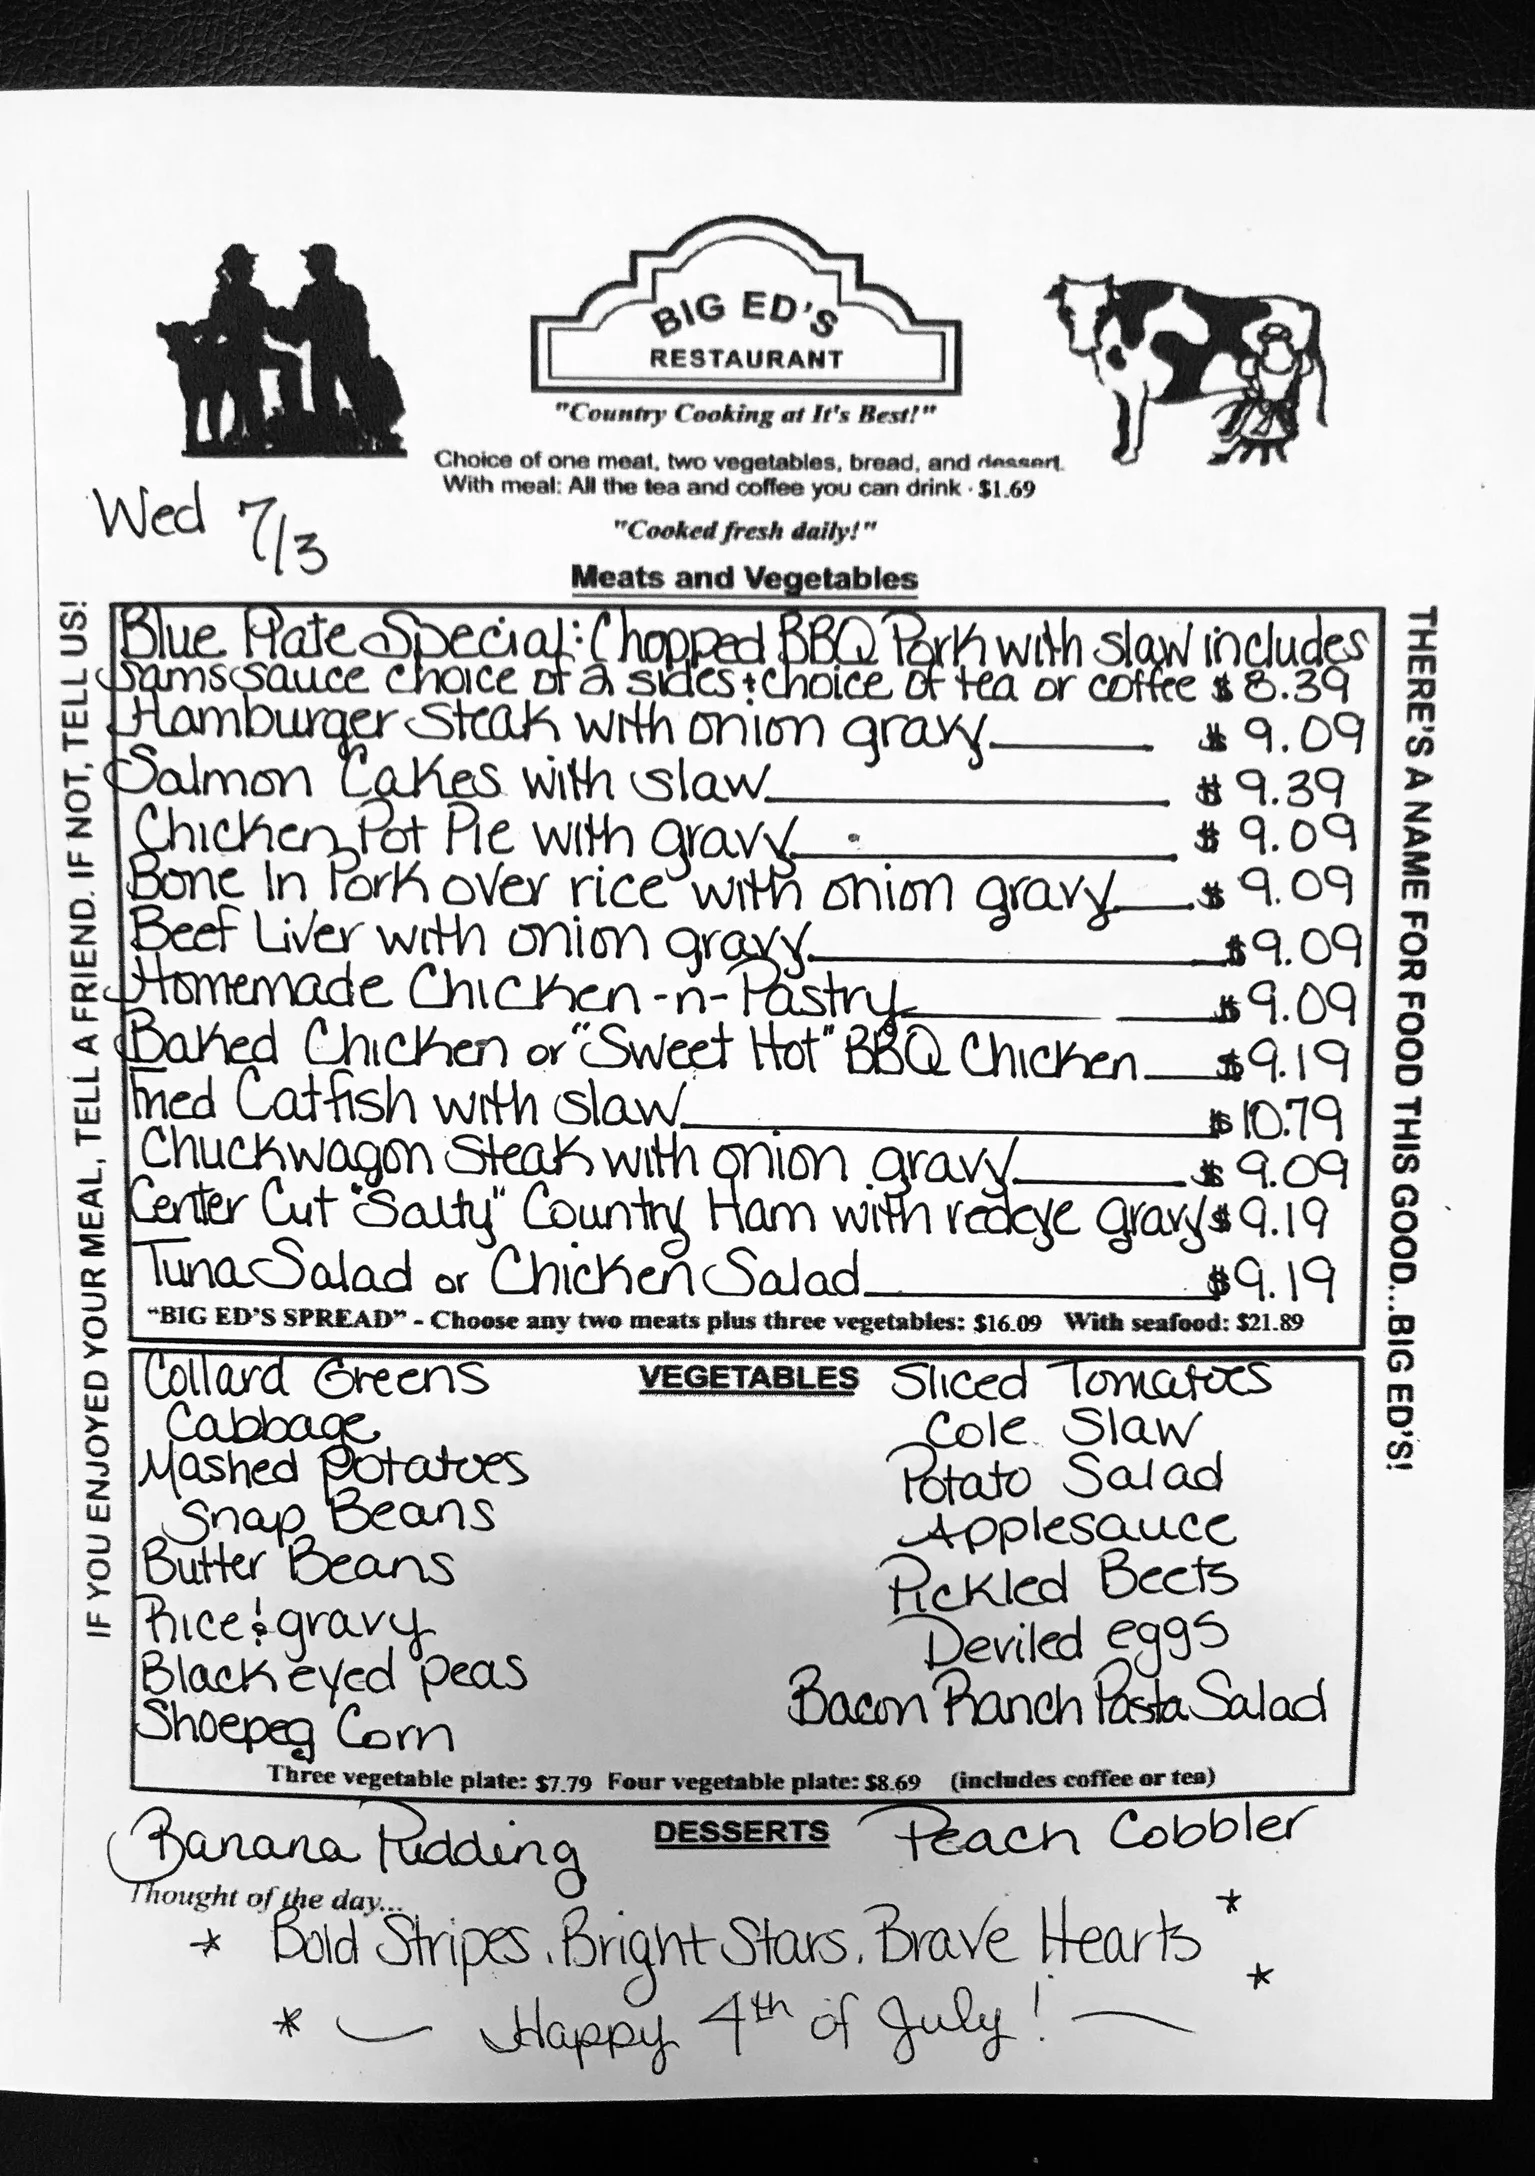 BIG ED'S
RESTAURANT
"Country Cooking at It's Best!"
Choice of one meat, two vegetables, bread, and dessert.
With meal: All the tea and coffee you can drink · $1.69
Wed 7/3
"Cooked fresh daily!"
Meats and Vegetables
IF YOU ENJOYED YOUR MEAL, TELL A FRIEND. IF NOT, TELL US!
THERE'S A NAME FOR FOOD THIS GOOD...BIG ED'S!
Blue Plate Special: Chopped BBQ Pork with slaw includes
Sams sauce choice of 2 sides & choice of tea or coffee $ 8.39
Hamburger Steak with onion gravy $ 9.09
Salmon Cakes with slaw $ 9.39
Chicken Pot Pie with gravy $ 9.09
Bone In Pork over rice with onion gravy $ 9.09
Beef Liver with onion gravy $9.09
Homemade Chicken-n-Pastry $9.09
Baked Chicken or "Sweet Hot" BBQ Chicken $9.19
Fried Catfish with slaw $10.79
Chuckwagon Steak with onion gravy $ 9.09
Center Cut "Salty" Country Ham with redeye gravy $9.19
Tuna Salad or Chicken Salad $9.19
"BIG ED'S SPREAD" - Choose any two meats plus three vegetables: $16.09 With seafood: $21.89
VEGETABLES
Collard Greens
Cabbage
Mashed Potatoes
Snap Beans
Butter Beans
Rice & gravy
Black eyed peas
Shoepeg Corn
Sliced Tomatoes
Cole Slaw
Potato Salad
Applesauce
Pickled Beets
Deviled eggs
Bacon Ranch Pasta Salad
Three vegetable plate: $7.79 Four vegetable plate: $8.69 (includes coffee or tea)
DESSERTS
Banana Pudding
Peach Cobbler
Thought of the day...
* Bold Stripes, Bright Stars, Brave Hearts *
* Happy 4th of July! *